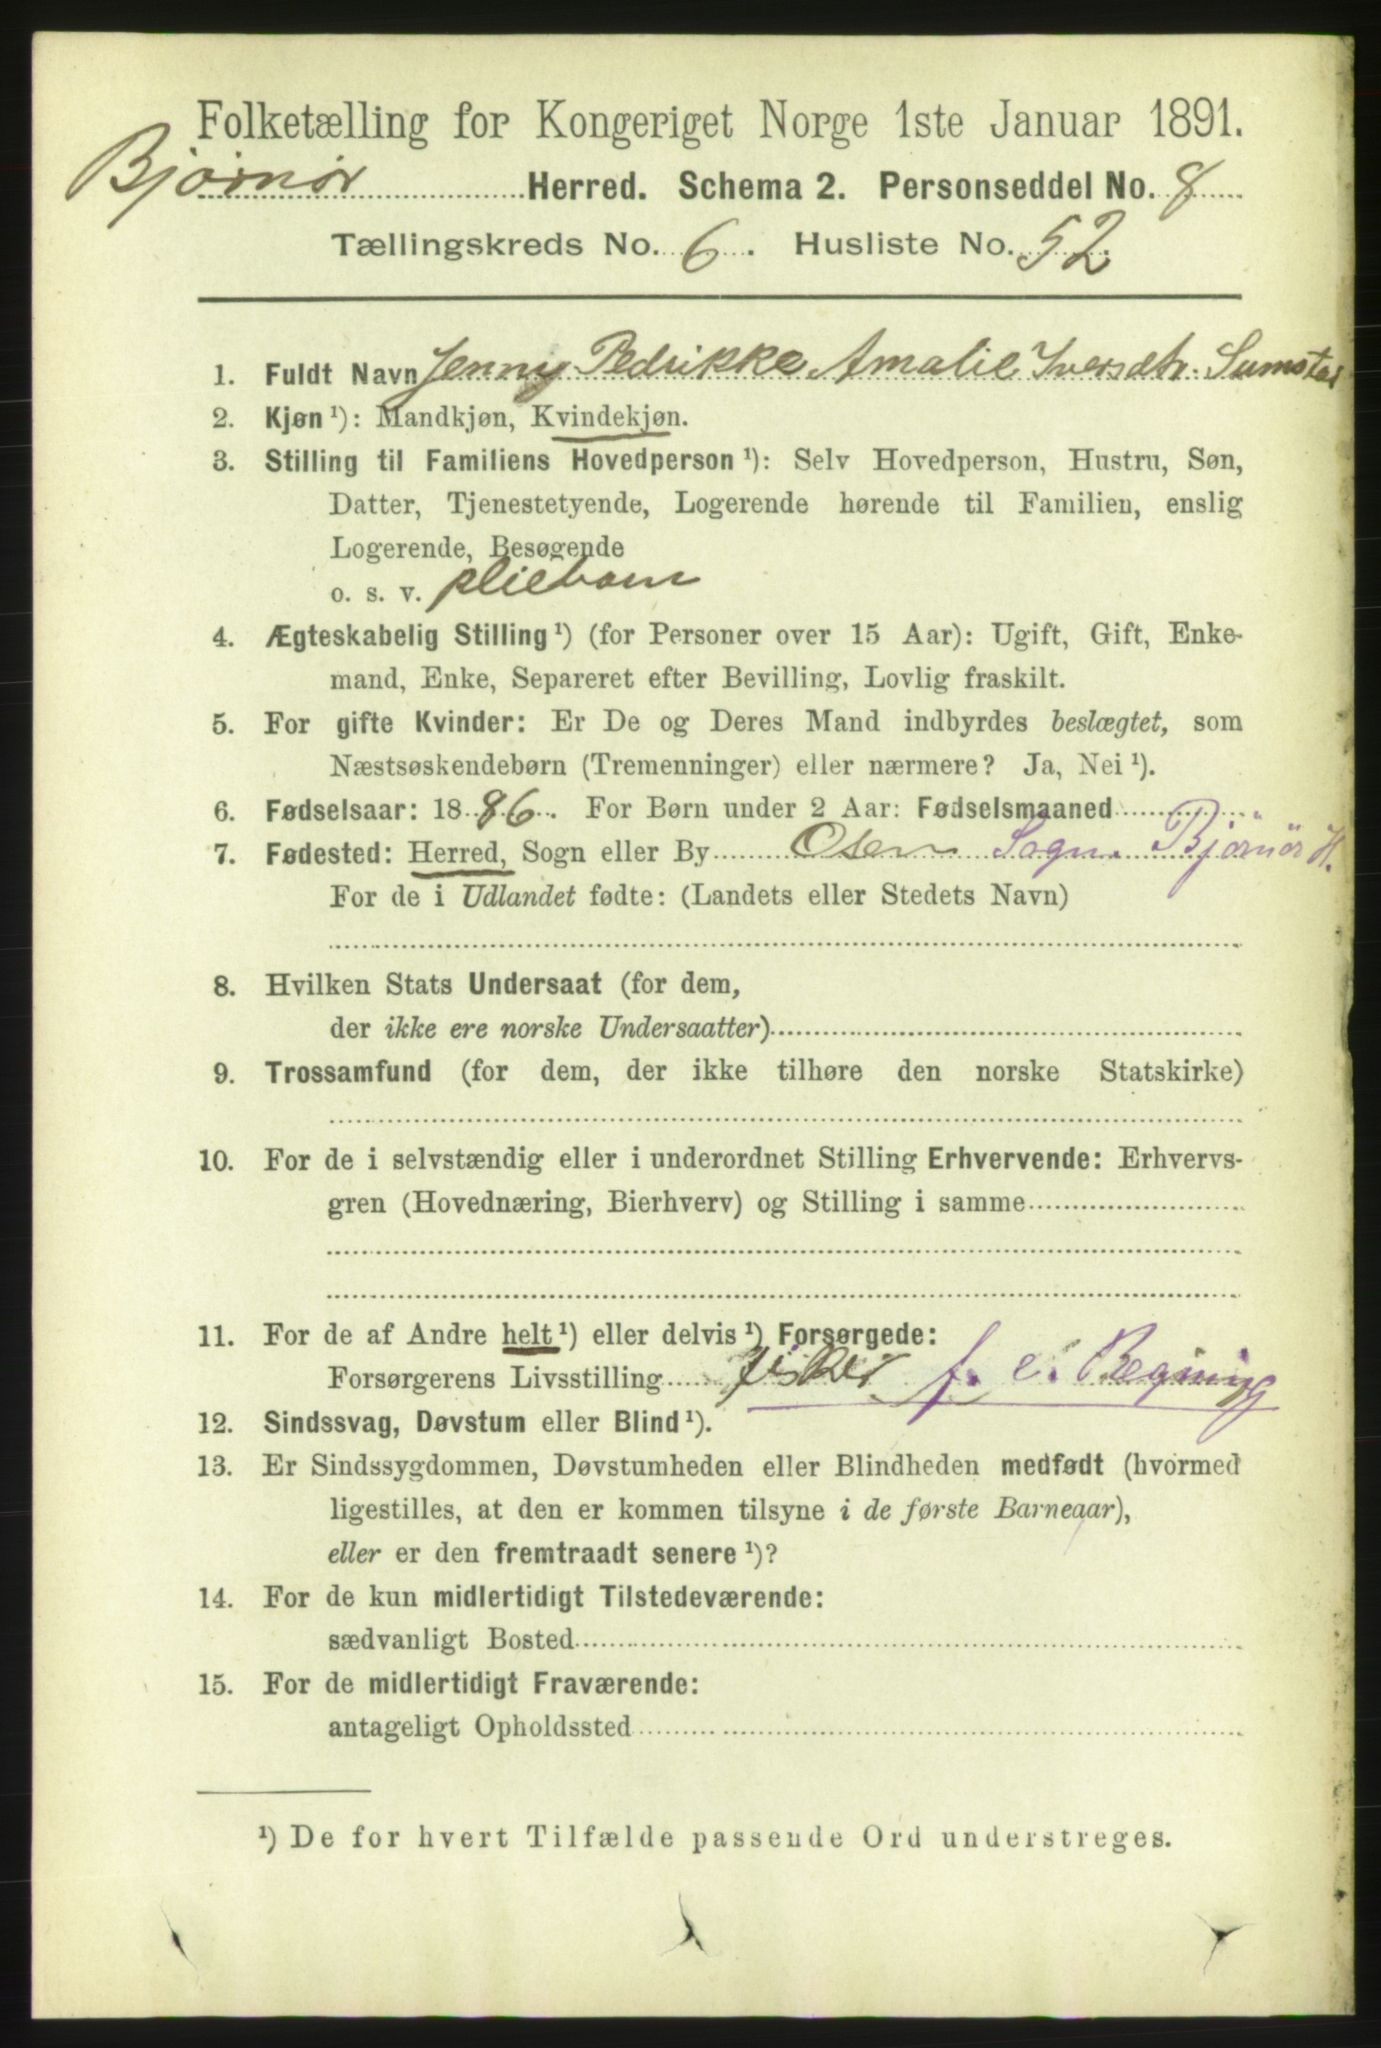 Folketælling for Kongeriget Norge 1ste Januar 1891.
Bjørnør Herred. Schema 2. Personseddel No. 8
Tællingskreds No. 6. Husliste No. 52.
1. Fuldt Navn Jenny Pedrikke Amalie Iversdtr. Sumstad
2. Kjøn ¹): Mandkjøn, Kvindekjøn.
3. Stilling til Familiens Hovedperson ¹): Selv Hovedperson, Hustru, Søn,
Datter, Tjenestetyende, Logerende hørende til Familien, enslig
Logerende, Besøgende
o. s. v. pliebarn
4. Ægteskabelig Stilling ¹) (for Personer over 15 Aar): Ugift, Gift, Enke-
mand, Enke, Separeret efter Bevilling, Lovlig fraskilt.
5. For gifte Kvinder: Er De og Deres Mand indbyrdes beslægtet, som
Næstsøskendebørn (Tremenninger) eller nærmere? Ja, Nei ¹).
6. Fødselsaar: 1886. For Børn under 2 Aar: Fødselsmaaned
7. Fødested: Herred, Sogn eller By Osen Sogn. Bjørnör H.
For de i Udlandet fødte: (Landets eller Stedets Navn)
8. Hvilken Stats Undersaat (for dem,
der ikke ere norske Undersaatter)
9. Trossamfund (for dem, der ikke tilhøre den norske Statskirke)
10. For de i selvstændig eller i underordnet Stilling Erhvervende: Erhvervs-
gren (Hovednæring, Bierhverv) og Stilling i samme
11. For de af Andre helt ¹) eller delvis ¹) Forsørgede:
Forsørgerens Livsstilling fisker f. e. Regning
12. Sindssvag, Døvstum eller Blind ¹).
13. Er Sindssygdommen, Døvstumheden eller Blindheden medfødt (hvormed
ligestilles, at den er kommen tilsyne i de første Barneaar),
eller er den fremtraadt senere ¹)?
14. For de kun midlertidigt Tilstedeværende:
sædvanligt Bosted
15. For de midlertidigt Fraværende:
antageligt Opholdssted
¹) De for hvert Tilfælde passende Ord understreges.